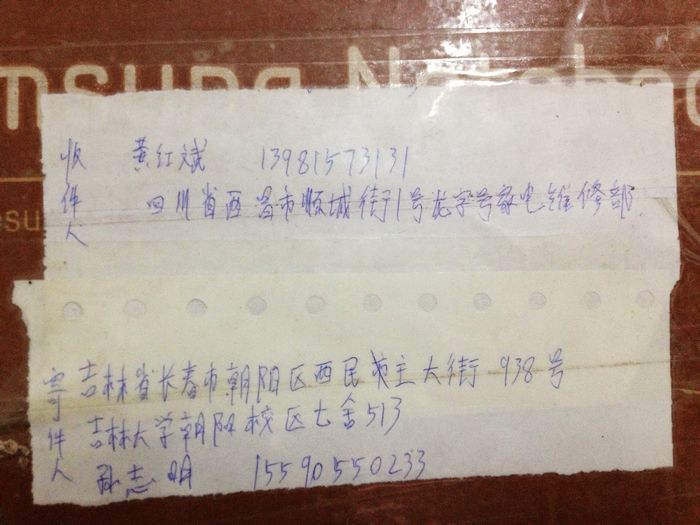 msung Noteboo
su
收件人
黄红斌 13981573131
四川省西昌市顺城街1号龙字号家电维修部
寄件人
吉林省长春市朝阳区西民主大街 938号
吉林大学朝阳校区七舍513
孙志明 15590550233